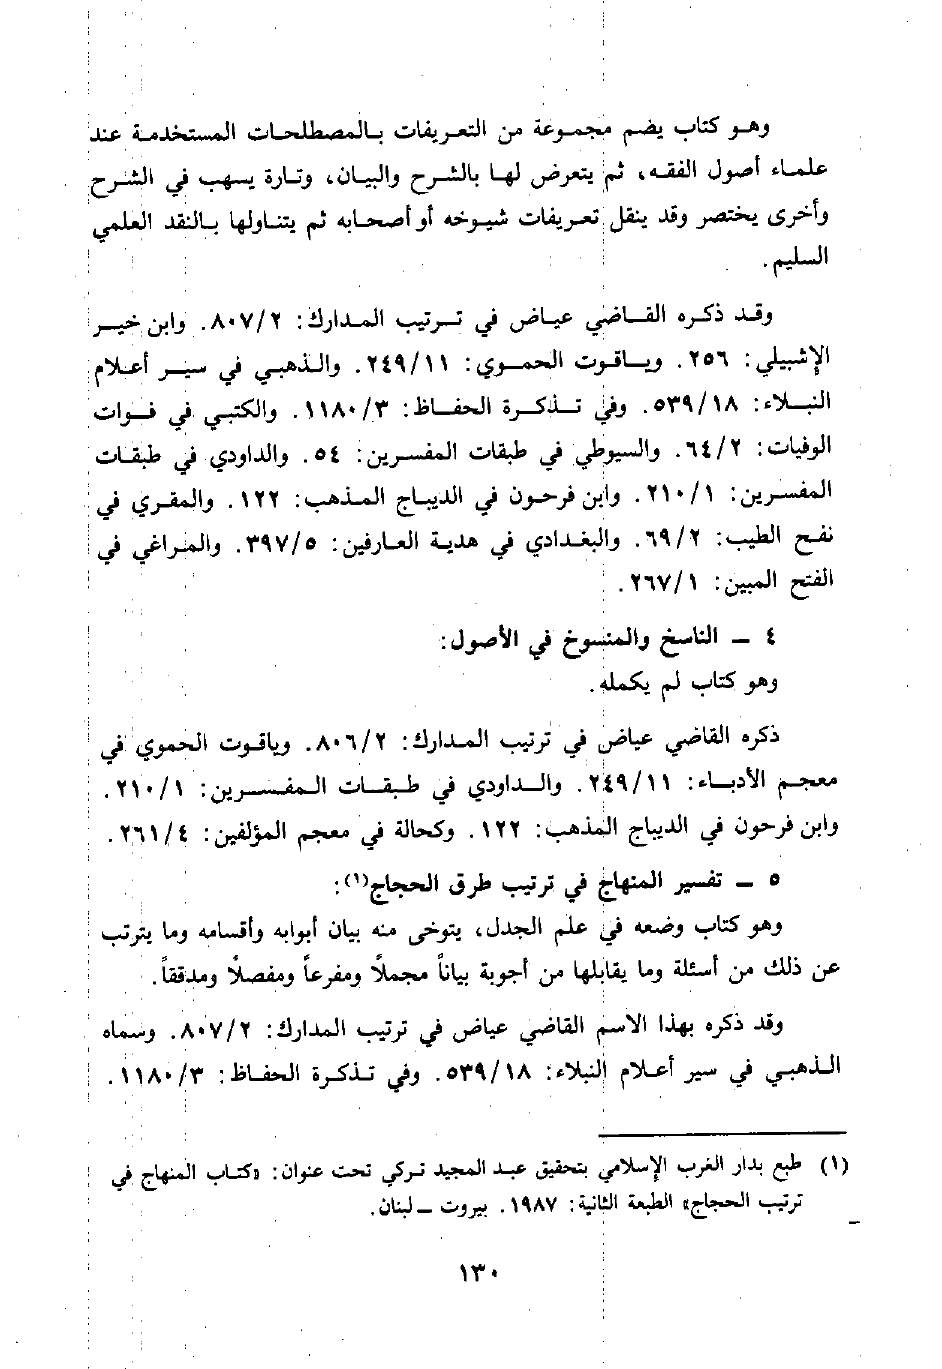 وهو كتاب يضم مجموعة من التعريفات بالمصطلحات المستخدمة عند
علماء أصول الفقه، ثم يتعرض لها بالشرح والبيان، وتارة يسهب في الشرح
وأخرى يختصر وقد ينقل تعريفات شيوخه أو أصحابه ثم يتناولها بالنقد العلمي
السليم.
وقد ذكره القاضي عياض في ترتيب المدارك: ٨٠٧/٢. وابن خير
الإشبيلي: ٢٥٦. وياقوت الحموي: ٢٤٩/١١. والذهبي في سير أعلام
النبلاء: ٥٣٩/١٨. وفي تذكرة الحفاظ: ١١٨٠/٣. والكتبي في فوات
الوفيات: ٦٤/٢. والسيوطي في طبقات المفسرين: ٥٤. والداودي في طبقات
المفسرين: ٢١٠/١. وابن فرحون في الديباج المذهب: ١٢٢. والمقري في
نفح الطيب: ٦٩/٢. والبغدادي في هدية العارفين: ٣٩٧/٥. والمراغي في
الفتح المبين: ٢٦٧/١.
٤ ـ الناسخ والمنسوخ في الأصول:
وهو كتاب لم يكمله.
ذكره القاضي عياض في ترتيب المدارك: ٨٠٦/٢. وياقوت الحموي في
معجم الأدباء: ٢٤٩/١١. والداودي في طبقات المفسرين: ٢١٠/١.
وابن فرحون في الديباج المذهب: ١٢٢. وكحالة في معجم المؤلفين: ٢٦١/٤.
٥ ـ تفسير المنهاج في ترتيب طرق الحجاج(١):
وهو كتاب وضعه في علم الجدل، يتوخى منه بيان أبوابه وأقسامه وما يترتب
عن ذلك من أسئلة وما يقابلها من أجوبة بياناً مجملاً ومفرعاً ومفصلاً ومدققاً.
وقد ذكره بهذا الاسم القاضي عياض في ترتيب المدارك: ٨٠٧/٢. وسماه
الذهبي في سير أعلام النبلاء: ٥٣٩/١٨. وفي تذكرة الحفاظ: ١١٨٠/٣.
(١) طبع بدار الغرب الإسلامي بتحقيق عبد المجيد تركي تحت عنوان: «كتاب المنهاج في
ترتيب الحجاج» الطبعة الثانية: ١٩٨٧. بيروت ـ لبنان.
١٣٠